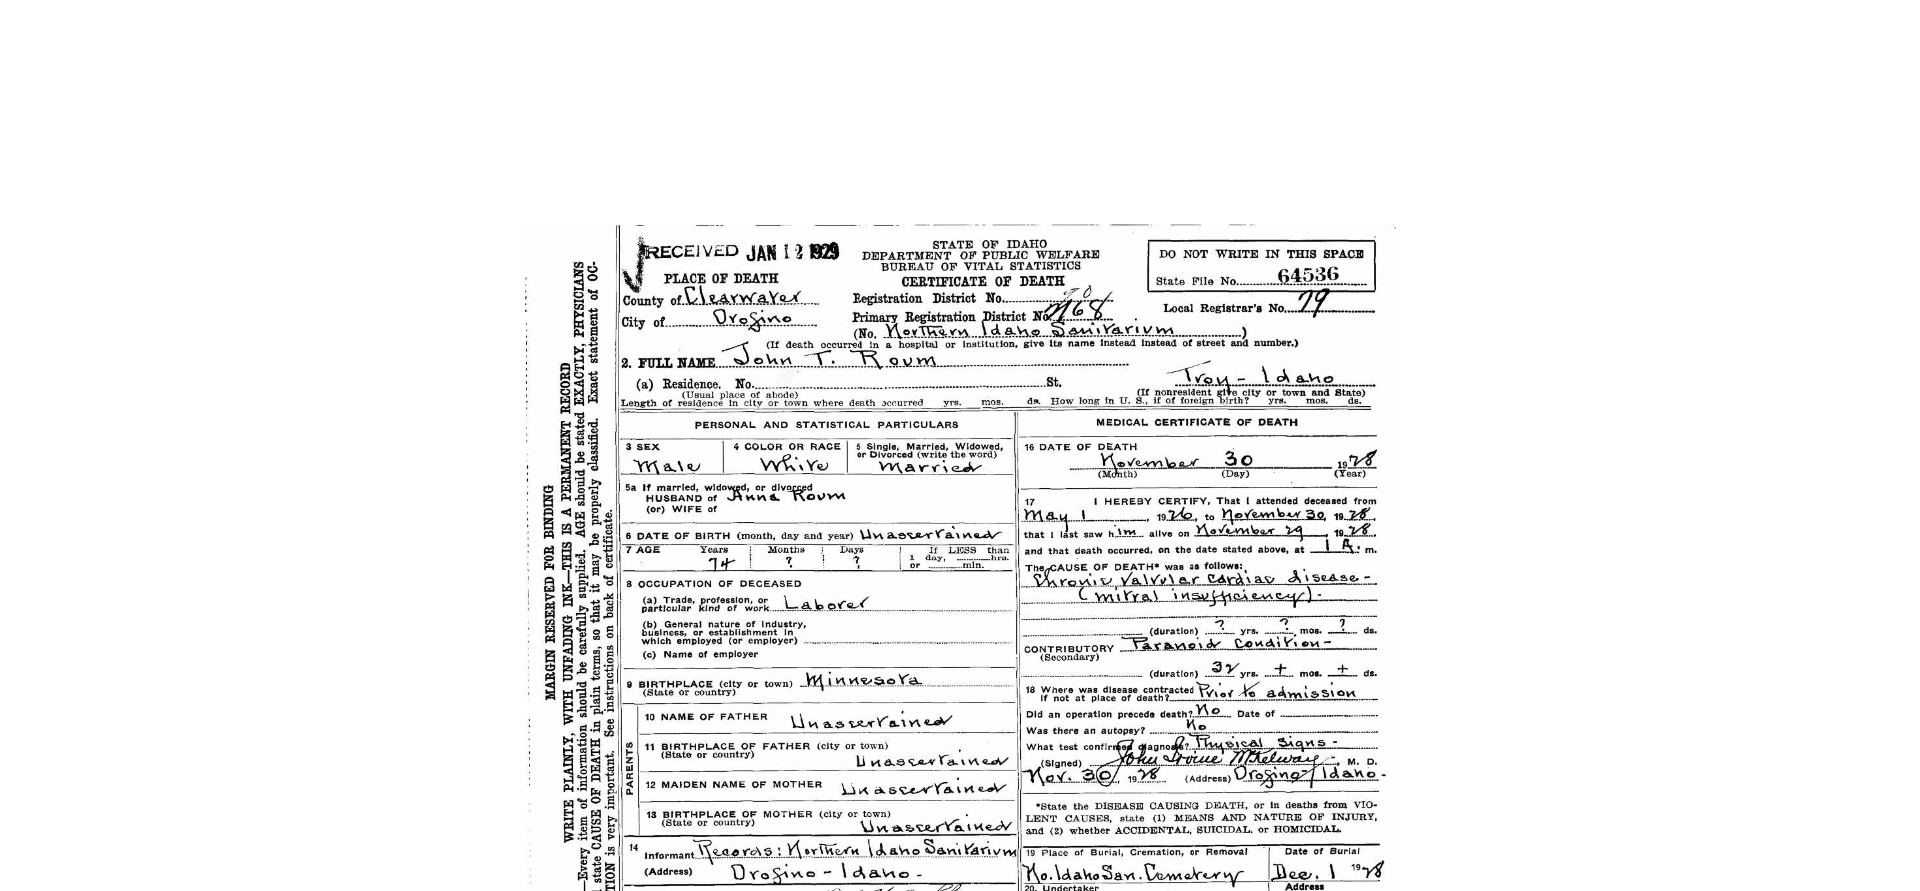 RECEIVED JAN 12 1929
STATE OF IDAHO
DEPARTMENT OF PUBLIC WELFARE
BUREAU OF VITAL STATISTICS
CERTIFICATE OF DEATH
DO NOT WRITE IN THIS SPACE
State File No. 64536
PLACE OF DEATH
County of Clearwater
City of Orofino
Registration District No.
Primary Registration District No.
Local Registrar's No. 79
(No. Northern Idaho Sanitarium )
(If death occurred in a hospital or institution, give its name instead instead of street and number.)
2. FULL NAME John T. Roum
(a) Residence. No. St. Troy - Idaho
(Usual place of abode) (If nonresident give city or town and State)
Length of residence in city or town where death occurred yrs. mos. ds. How long in U. S., if of foreign birth? yrs. mos. ds.
PERSONAL AND STATISTICAL PARTICULARS
3 SEX
Male
4 COLOR OR RACE
White
5 Single, Married, Widowed,
or Divorced (write the word)
Married
5a If married, widowed, or divorced
HUSBAND of Anna Roum
(or) WIFE of
6 DATE OF BIRTH (month, day and year) Unascertained
7 AGE Years Months Days If LESS than
74 ? ? 1 day, hrs.
or min.
8 OCCUPATION OF DECEASED
(a) Trade, profession, or
particular kind of work Laborer
(b) General nature of industry,
business, or establishment in
which employed (or employer)
(c) Name of employer
9 BIRTHPLACE (city or town) Minnesota
(State or country)
PARENTS
10 NAME OF FATHER Unascertained
11 BIRTHPLACE OF FATHER (city or town)
(State or country) Unascertained
12 MAIDEN NAME OF MOTHER Unascertained
13 BIRTHPLACE OF MOTHER (city or town)
(State or country) Unascertained
14
Informant Records: Northern Idaho Sanitarium
(Address) Orofino - Idaho -
MEDICAL CERTIFICATE OF DEATH
16 DATE OF DEATH
November 30 1928
(Month) (Day) (Year)
17 I HEREBY CERTIFY, That I attended deceased from
May 1, 1926, to November 30, 1928,
that I last saw him alive on November 29, 1928,
and that death occurred, on the date stated above, at 1 A. m.
The CAUSE OF DEATH* was as follows:
Chronic valvular cardiac disease -
(mitral insufficiency) -
(duration) ? yrs. ? mos. ? ds.
CONTRIBUTORY Paranoid Condition -
(Secondary)
(duration) 32 yrs. + mos. + ds.
18 Where was disease contracted
if not at place of death? Prior to admission
Did an operation precede death? No Date of
Was there an autopsy? No
What test confirmed diagnosis? Physical signs -
(Signed) John Irvine McKelway, M. D.
Nov. 30, 1928 (Address) Orofino - Idaho -
*State the DISEASE CAUSING DEATH, or in deaths from VIO-
LENT CAUSES, state (1) MEANS AND NATURE OF INJURY,
and (2) whether ACCIDENTAL, SUICIDAL, or HOMICIDAL.
19 Place of Burial, Cremation, or Removal
No. Idaho San. Cemetery
Date of Burial
Dec. 1 1928
20. Undertaker Address
MARGIN RESERVED FOR BINDING
WRITE PLAINLY, WITH UNFADING INK—THIS IS A PERMANENT RECORD
—Every item of information should be carefully supplied. AGE should be stated EXACTLY, PHYSICIANS
state CAUSE OF DEATH in plain terms, so that it may be properly classified. Exact statement of OC-
TION is very important. See instructions on back of certificate.